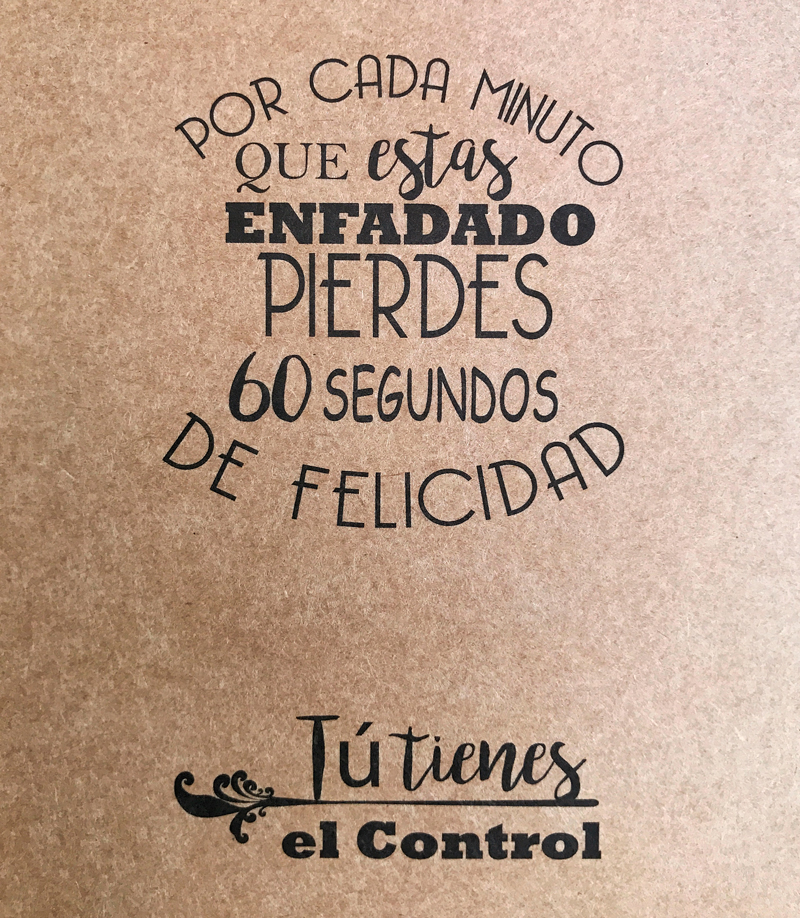 POR CADA MINUTO
QUE estas
ENFADADO
PIERDES
60 SEGUNDOS
DE FELICIDAD
Tú tienes
el Control